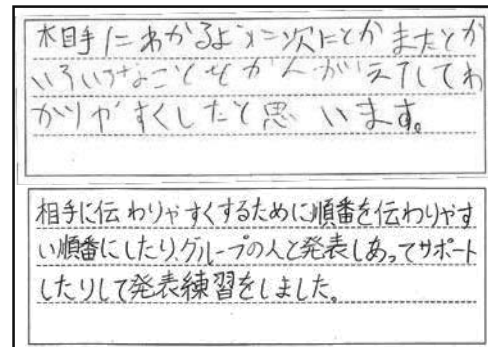 相手にわかるように次にとかまたとか
いろいろなことをかんがえたしてわ
かりやすくしたと思います。
相手に伝わりやすくするために順番を伝わりやす
い順番にしたり、グループの人と発表しあってサポート
したりして発表練習をしました。